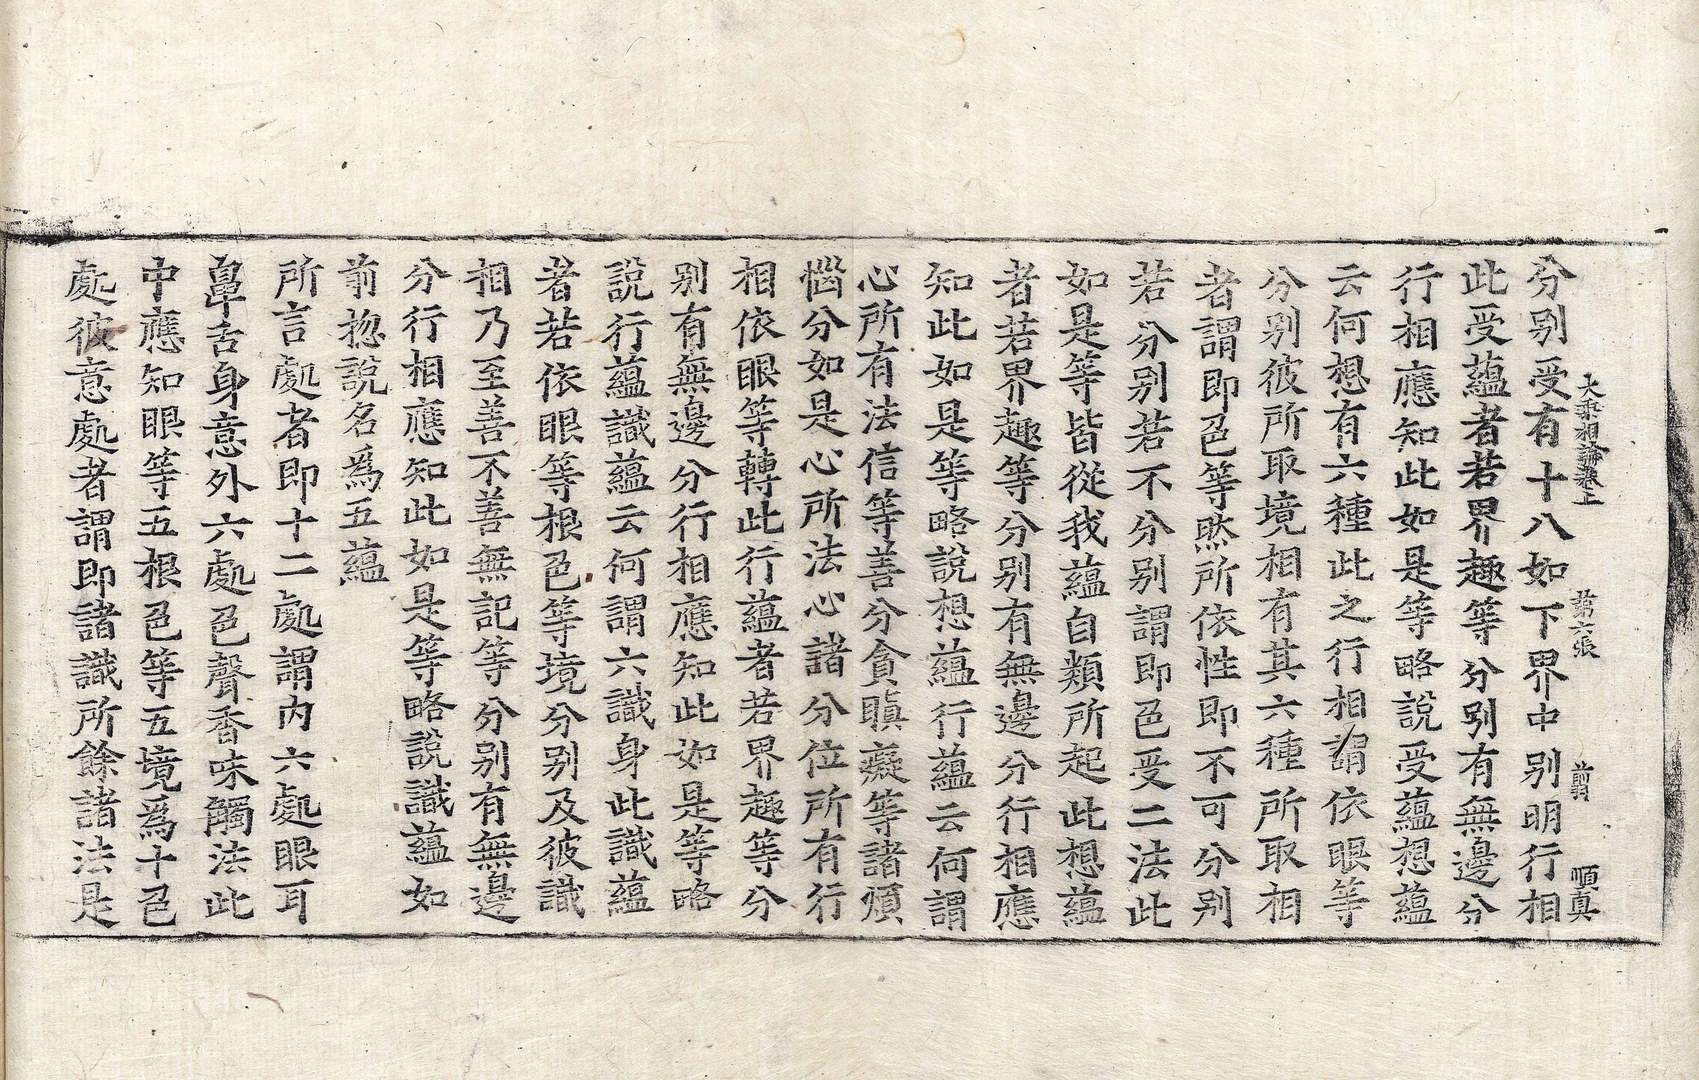 大乘相論卷上 第六張 翦 順真
分别受有十八如下界中别明行相
此受蘊者若界趣等分别有無邊分
行相應知此如是等略說受蘊想蘊
云何想有六種此之行相謂依眼等
分别彼所取境相有其六種所取相
者謂即色等然所依性即不可分别
若分别若不分别謂即色受二法此
如是等皆從我蘊自類所起此想蘊
者若界趣等分别有無邊分行相應
知此如是等略說想蘊行蘊云何謂
心所有法信等善分貪瞋癡等諸煩
惱分如是心所法心諸分位所有行
相依眼等轉此行蘊者若界趣等分
别有無邊分行相應知此如是等略
說行蘊識蘊云何謂六識身此識蘊
者若依眼等根色等境分别及彼識
相乃至善不善無記等分别有無邊
分行相應知此如是等略說識蘊如
前揔說名爲五蘊
所言處者即十二處謂内六處眼耳
鼻舌身意外六處色聲香味觸法此
中應知眼等五根色等五境爲十色
處彼意處者謂即諸識所餘諸法是